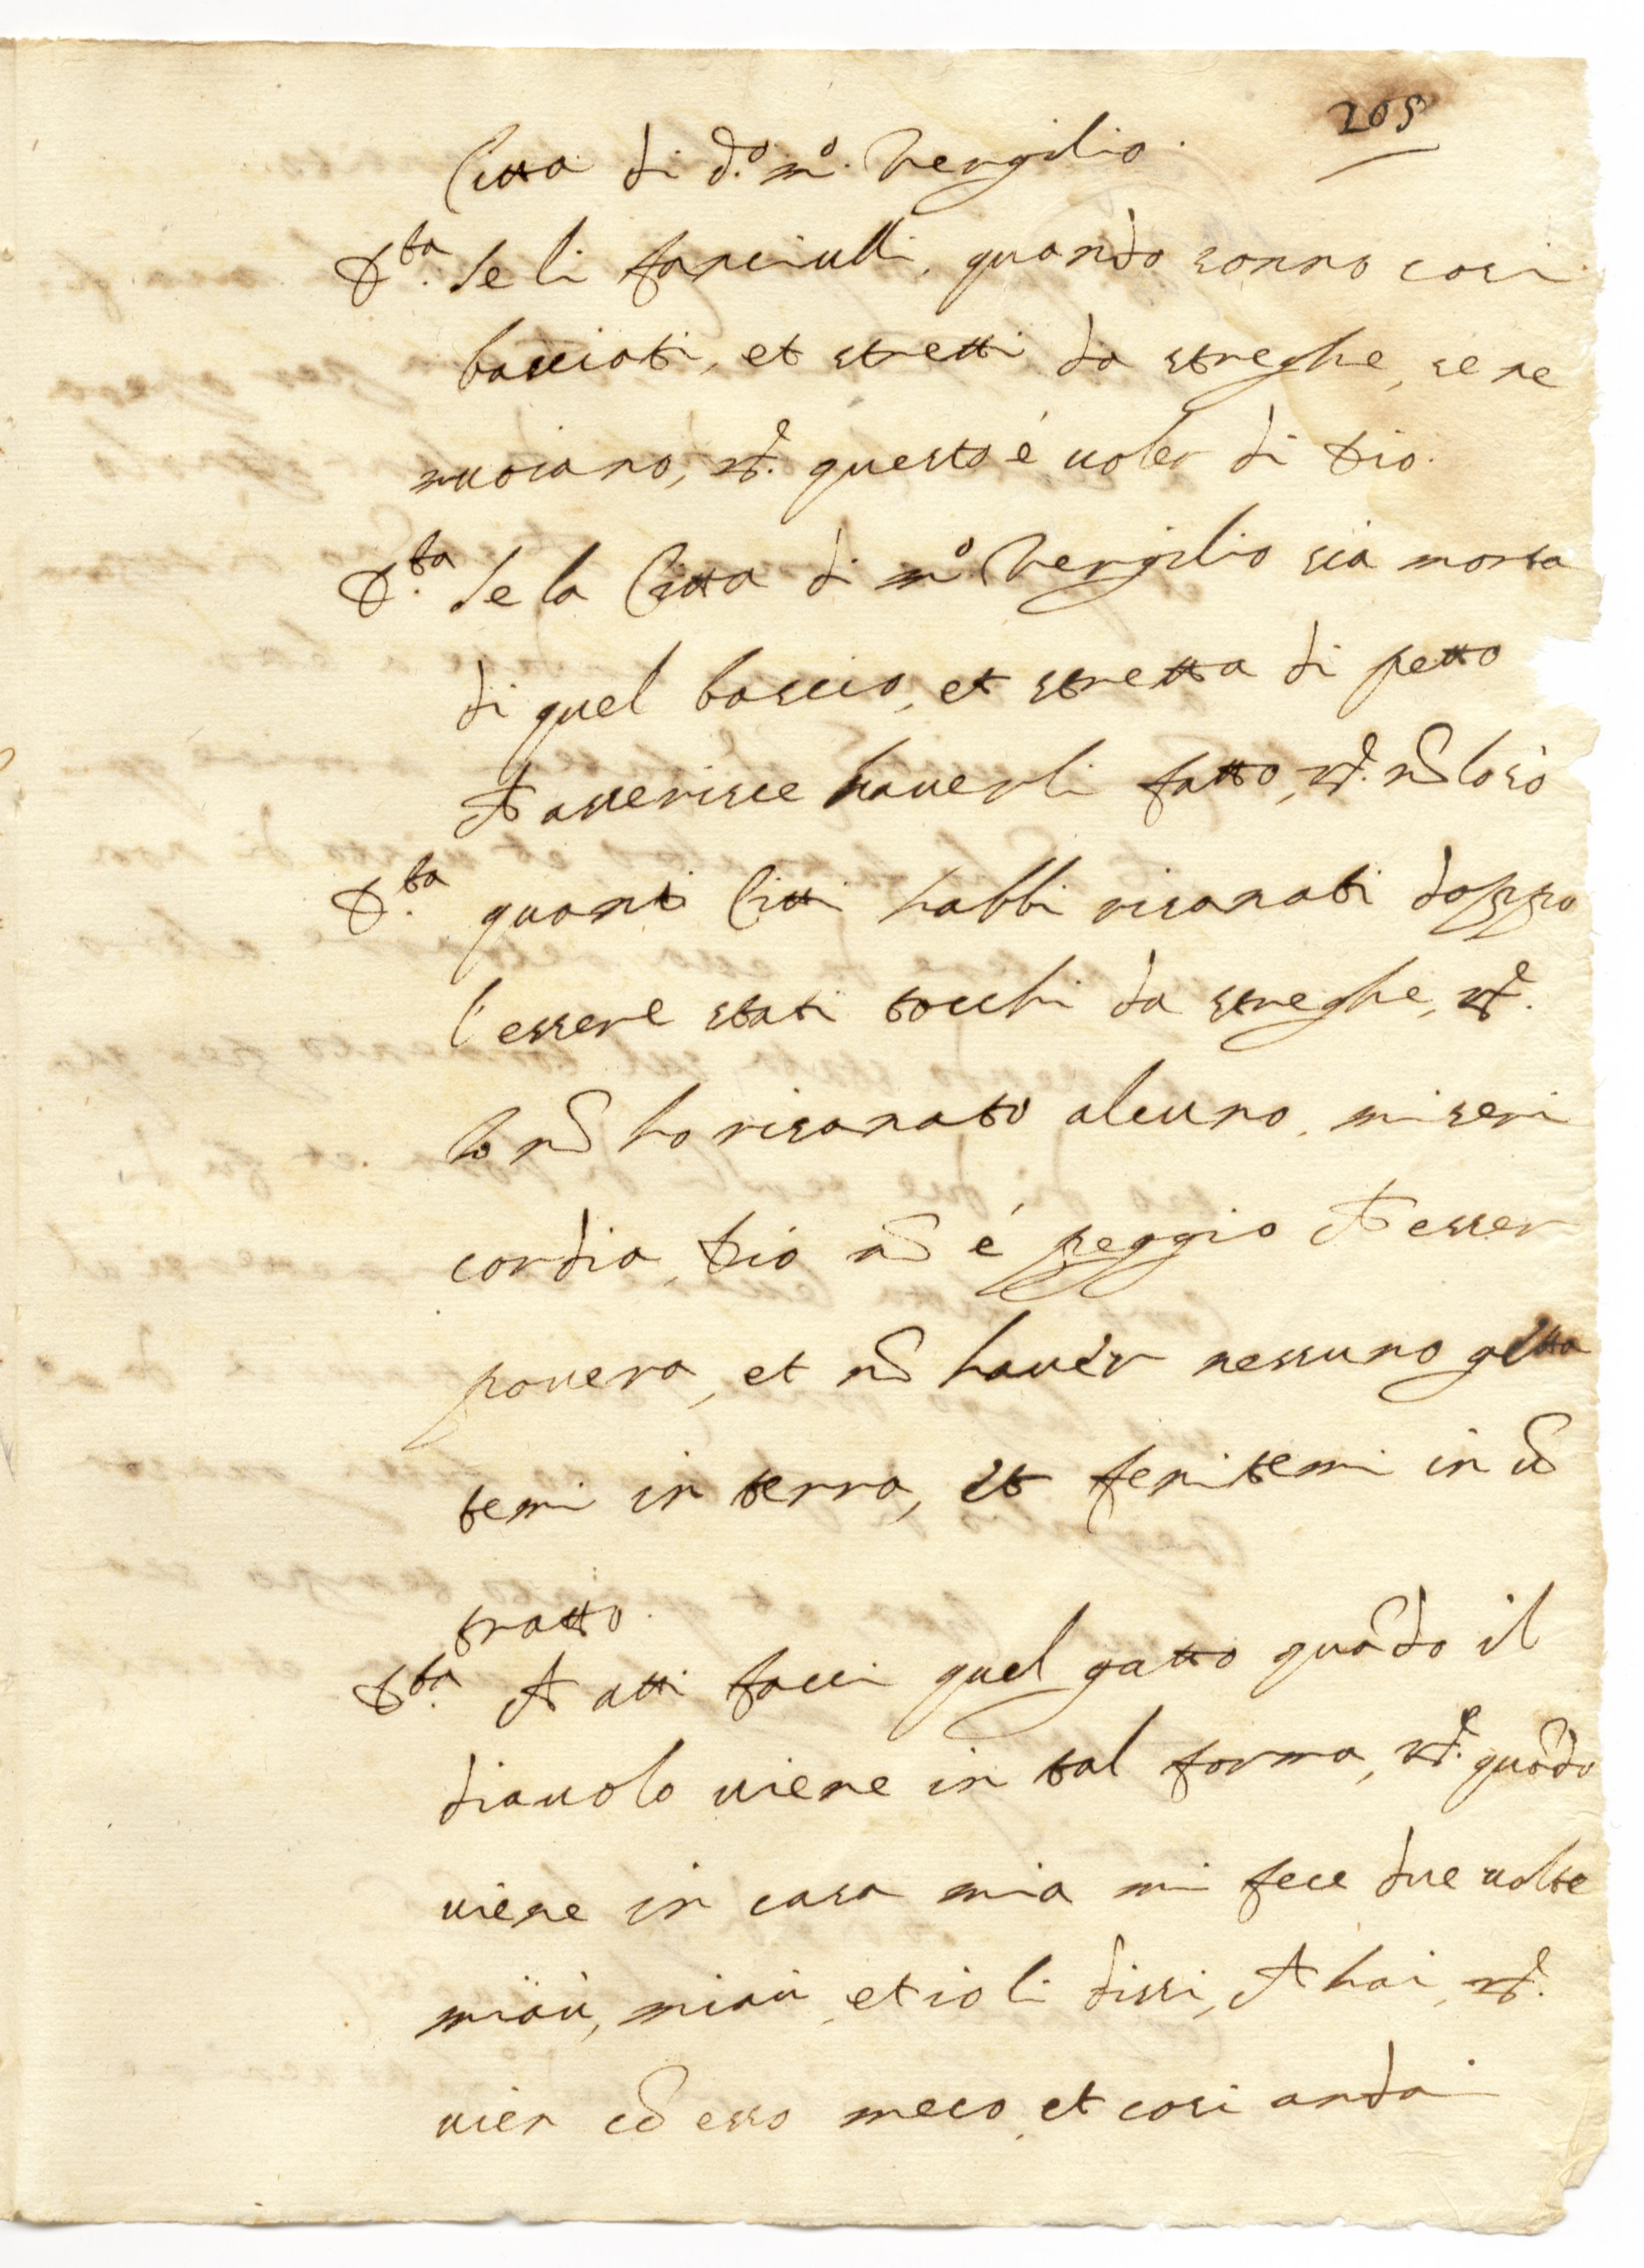 205
Citta di d.º m.º Vergilio.
D.ta Se li fanciulli, quando sonno cosi
basciati, et stretti da streghe, se ne
muoiano, rd.e questo é uoler di Dio.
D.ta Se la Citta di m.º Vergilio sia morta
di quel bascio, et stretta di petto
ch asserisce hauerli fatto, rd.e nõ lo sò
D.ta quanti Citti habbi risanati doppo
l essere stati tocchi da streghe, rd.e
Io nõ ho risanato alcuno, miseri
cordia, Dio nõ é peggio ch esser
pouera, et nõ hauér nessuno getta
temi in terra, et fenitemi in ũ
tratto.
D.ta ch atti facci quel gatto quãdo il
diauolo uiene in tal forma, rd.e quãdo
uiene in casa mia mi fece due uolte
miaù, miaù, et io li dissi, ch hai, rd.e
uien cõ esso meco, et cosi andai